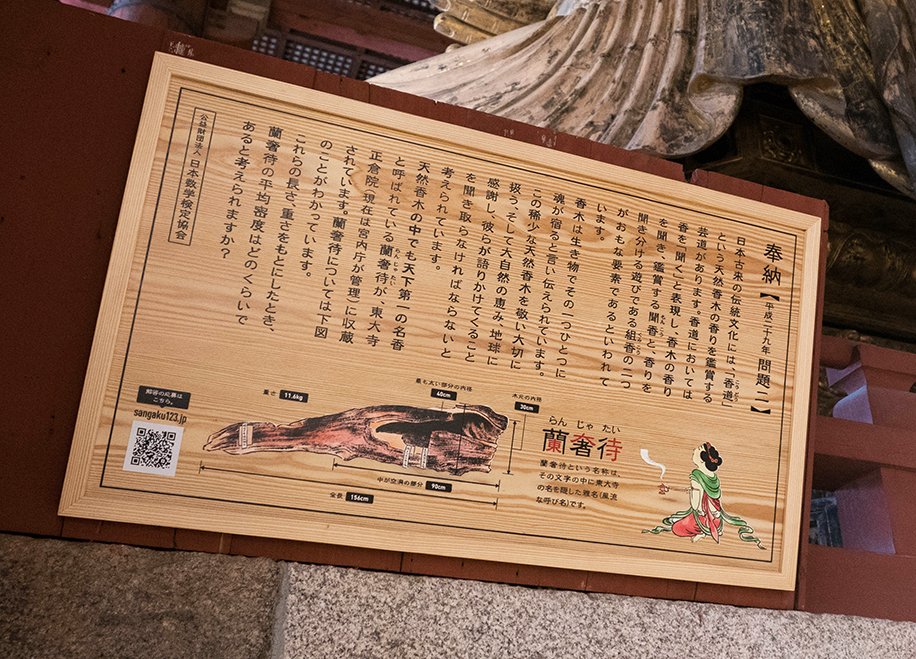 奉納【平成二十九年 問題二】
日本古来の伝統文化には、「香道」
という天然香木の香りを鑑賞する
芸道があります。香道においては
香を聞く」と表現し、香木の香り
を聞き、鑑賞する聞香と、香りを
聞き分ける遊びである組香の二つ
がおもな要素であるといわれて
います。
香木は生き物でその一つひとつに
魂が宿ると言い伝えられています。
この稀少な天然香木を敬い大切に
扱う。そして大自然の恵み、地球に
感謝し、彼らが語りかけてくること
を聞き取らなければならないと
考えられています。
天然香木の中でも天下第一の名香
と呼ばれている蘭奢待が、東大寺
正倉院(現在は宮内庁が管理)に収蔵
されています。蘭奢待については下図
のことがわかっています。
これらの長さ、重さをもとにしたとき、
蘭奢待の平均密度はどのくらいで
あると考えられますか?
公益財団法人 日本数学検定協会
らん じゃ たい
蘭奢待
蘭奢待という名称は、
その文字の中に東大寺
の名を隠した雅名(風流
な呼び名)です。
木元の内格
30cm
最も太い部分の内格
40cm
重さ 11.6kg
中が空洞の部分 90cm
全長 156cm
解答の応募は
こちら。
sangaku123.jp